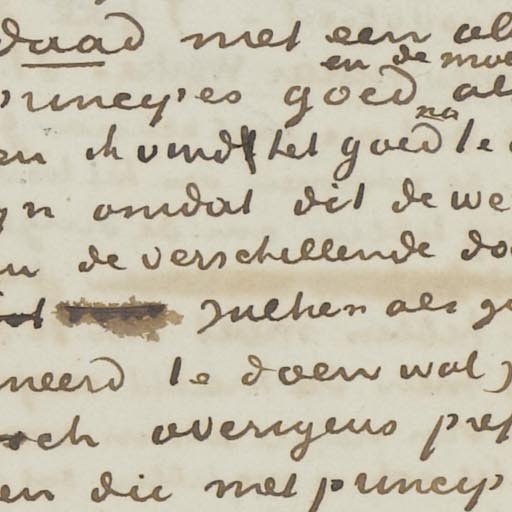 daad met een al
en de moe
principes goed als
en ik vind het goed na te
yn omdat dit de we
de verschillende do
zulken als g
neerd te doen wat z
och overigens pre
en die met princip